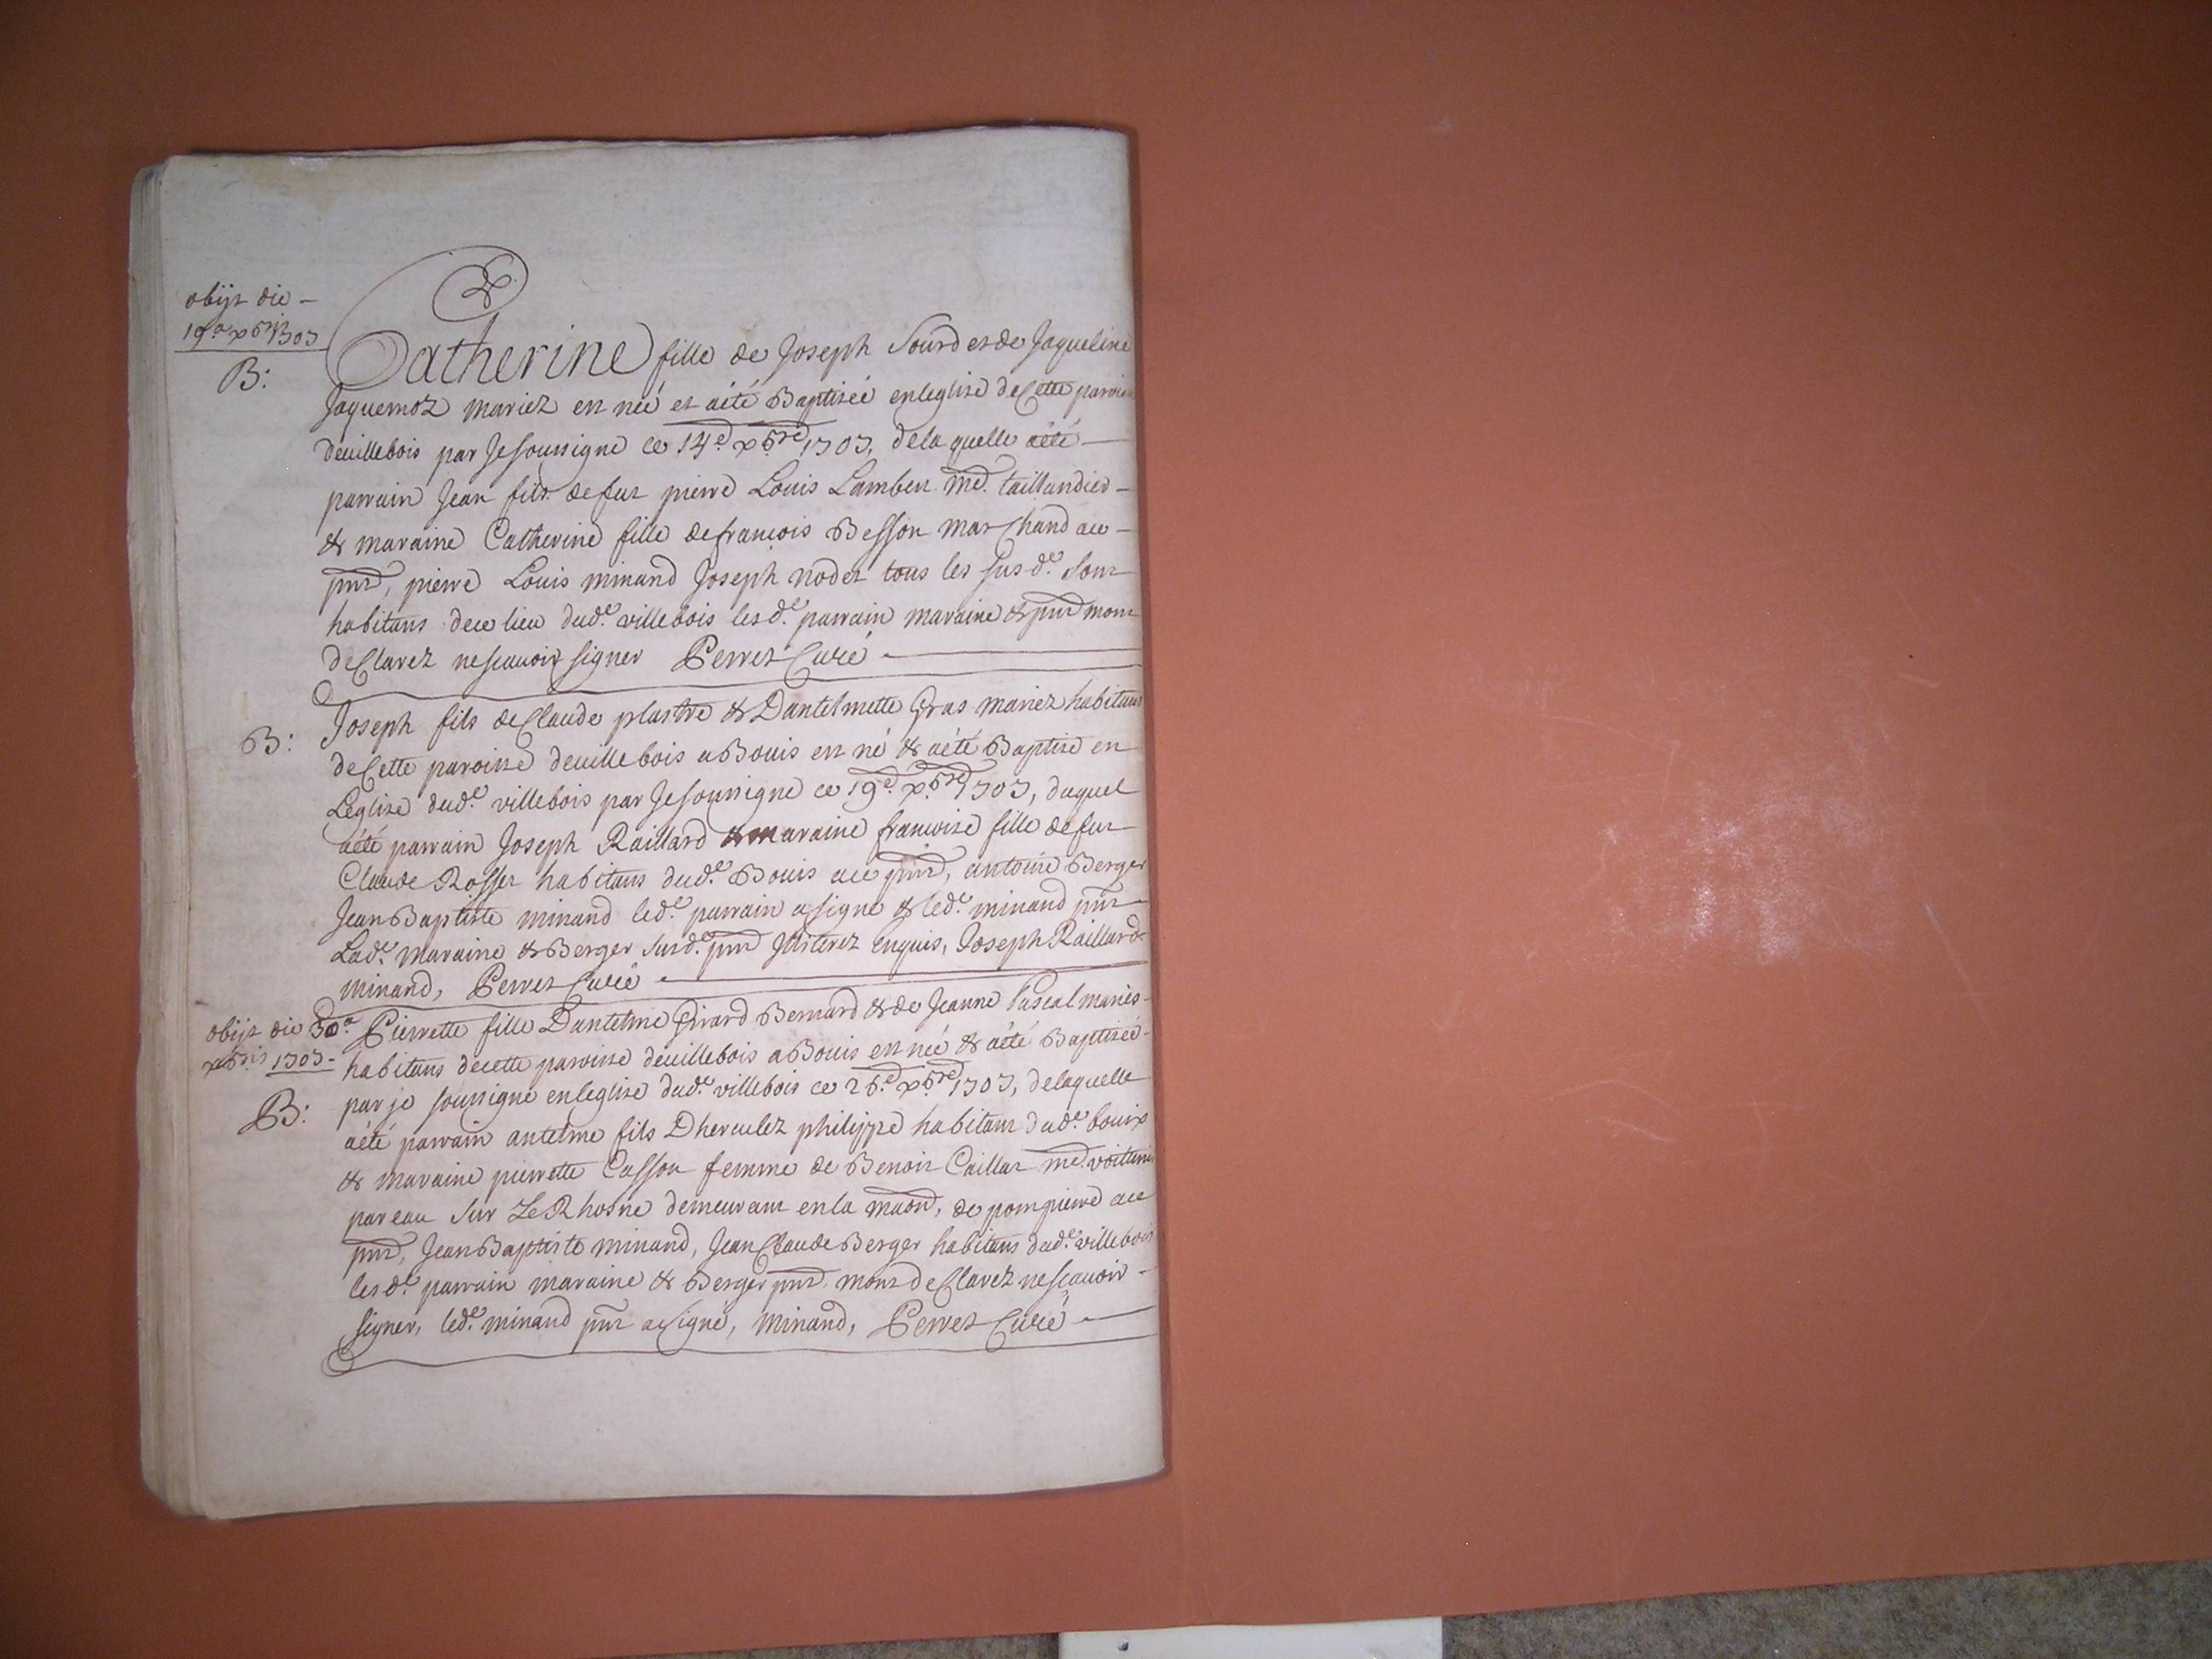 obijt die -
19.a xbris 1707
B:
Catherine fille de Joseph Sourd et de Jaqueline
Jaquemoz mariez est neé et aété Baptiseé enleglise deCette paroisse
deuillebois par Jesoussigne ce 14.e xbre 1707, dela quelle aété
parrain Jean fils defut pierre Louis Lambert md. taillandier -
& maraine Catherine fille defrancois Besson marChand au -
pnt, pierre Louis minand Joseph nodet tous les susd.t Sont
habitans dece lieu dud.t villebois lesd.t parrain maraine & pnt mont
deClarez nescauoir signer Perret Curé
B:
Joseph fils deClaude plastre & Dantelmette Gras mariez habitans
deCette paroisse deuillebois a Bouis est né & aété Baptise en
Leglise dud.t villebois par Jesoussigne ce 19.e xbre 1707, duquel
aété parrain Joseph Raillard & maraine francoise fille defut
Claude Rosset habitans dud.t Bouis au pnt, antoine Berger
Jean Baptiste minand led.t parrain a signe & led.t minand pnt
Lad.t maraine & Berger susd.t pnt Jlliterez enquis, Joseph Raillard
minand, Perret Curé
obijt die 30.a
xbris 1707 -
B:
Pierrette fille Dantelme Girard Bernard & de Jeanne Pascal mariés
habitans decette paroisse deuillebois a Bouis est neé & aété Baptiseé
par je soussigne enleglise dud.t villebois ce 26.e xbre 1707, delaquelle
aété parrain antelme fils Dherculez philippe habitant dud.t bouix
& maraine pierrette Casson femme de Benoit Caillat md. voiturier
par eau sur Le Rhosne demeurant en la maon, de pompierre au
pnt, Jean Baptiste minand, Jean Claude Berger habitans dud.t villebois
lesd.t parrain maraine & Berger pnt mont deClarez nescauoir -
signer, led.t minand pnt asigné, minand, Perret Curé